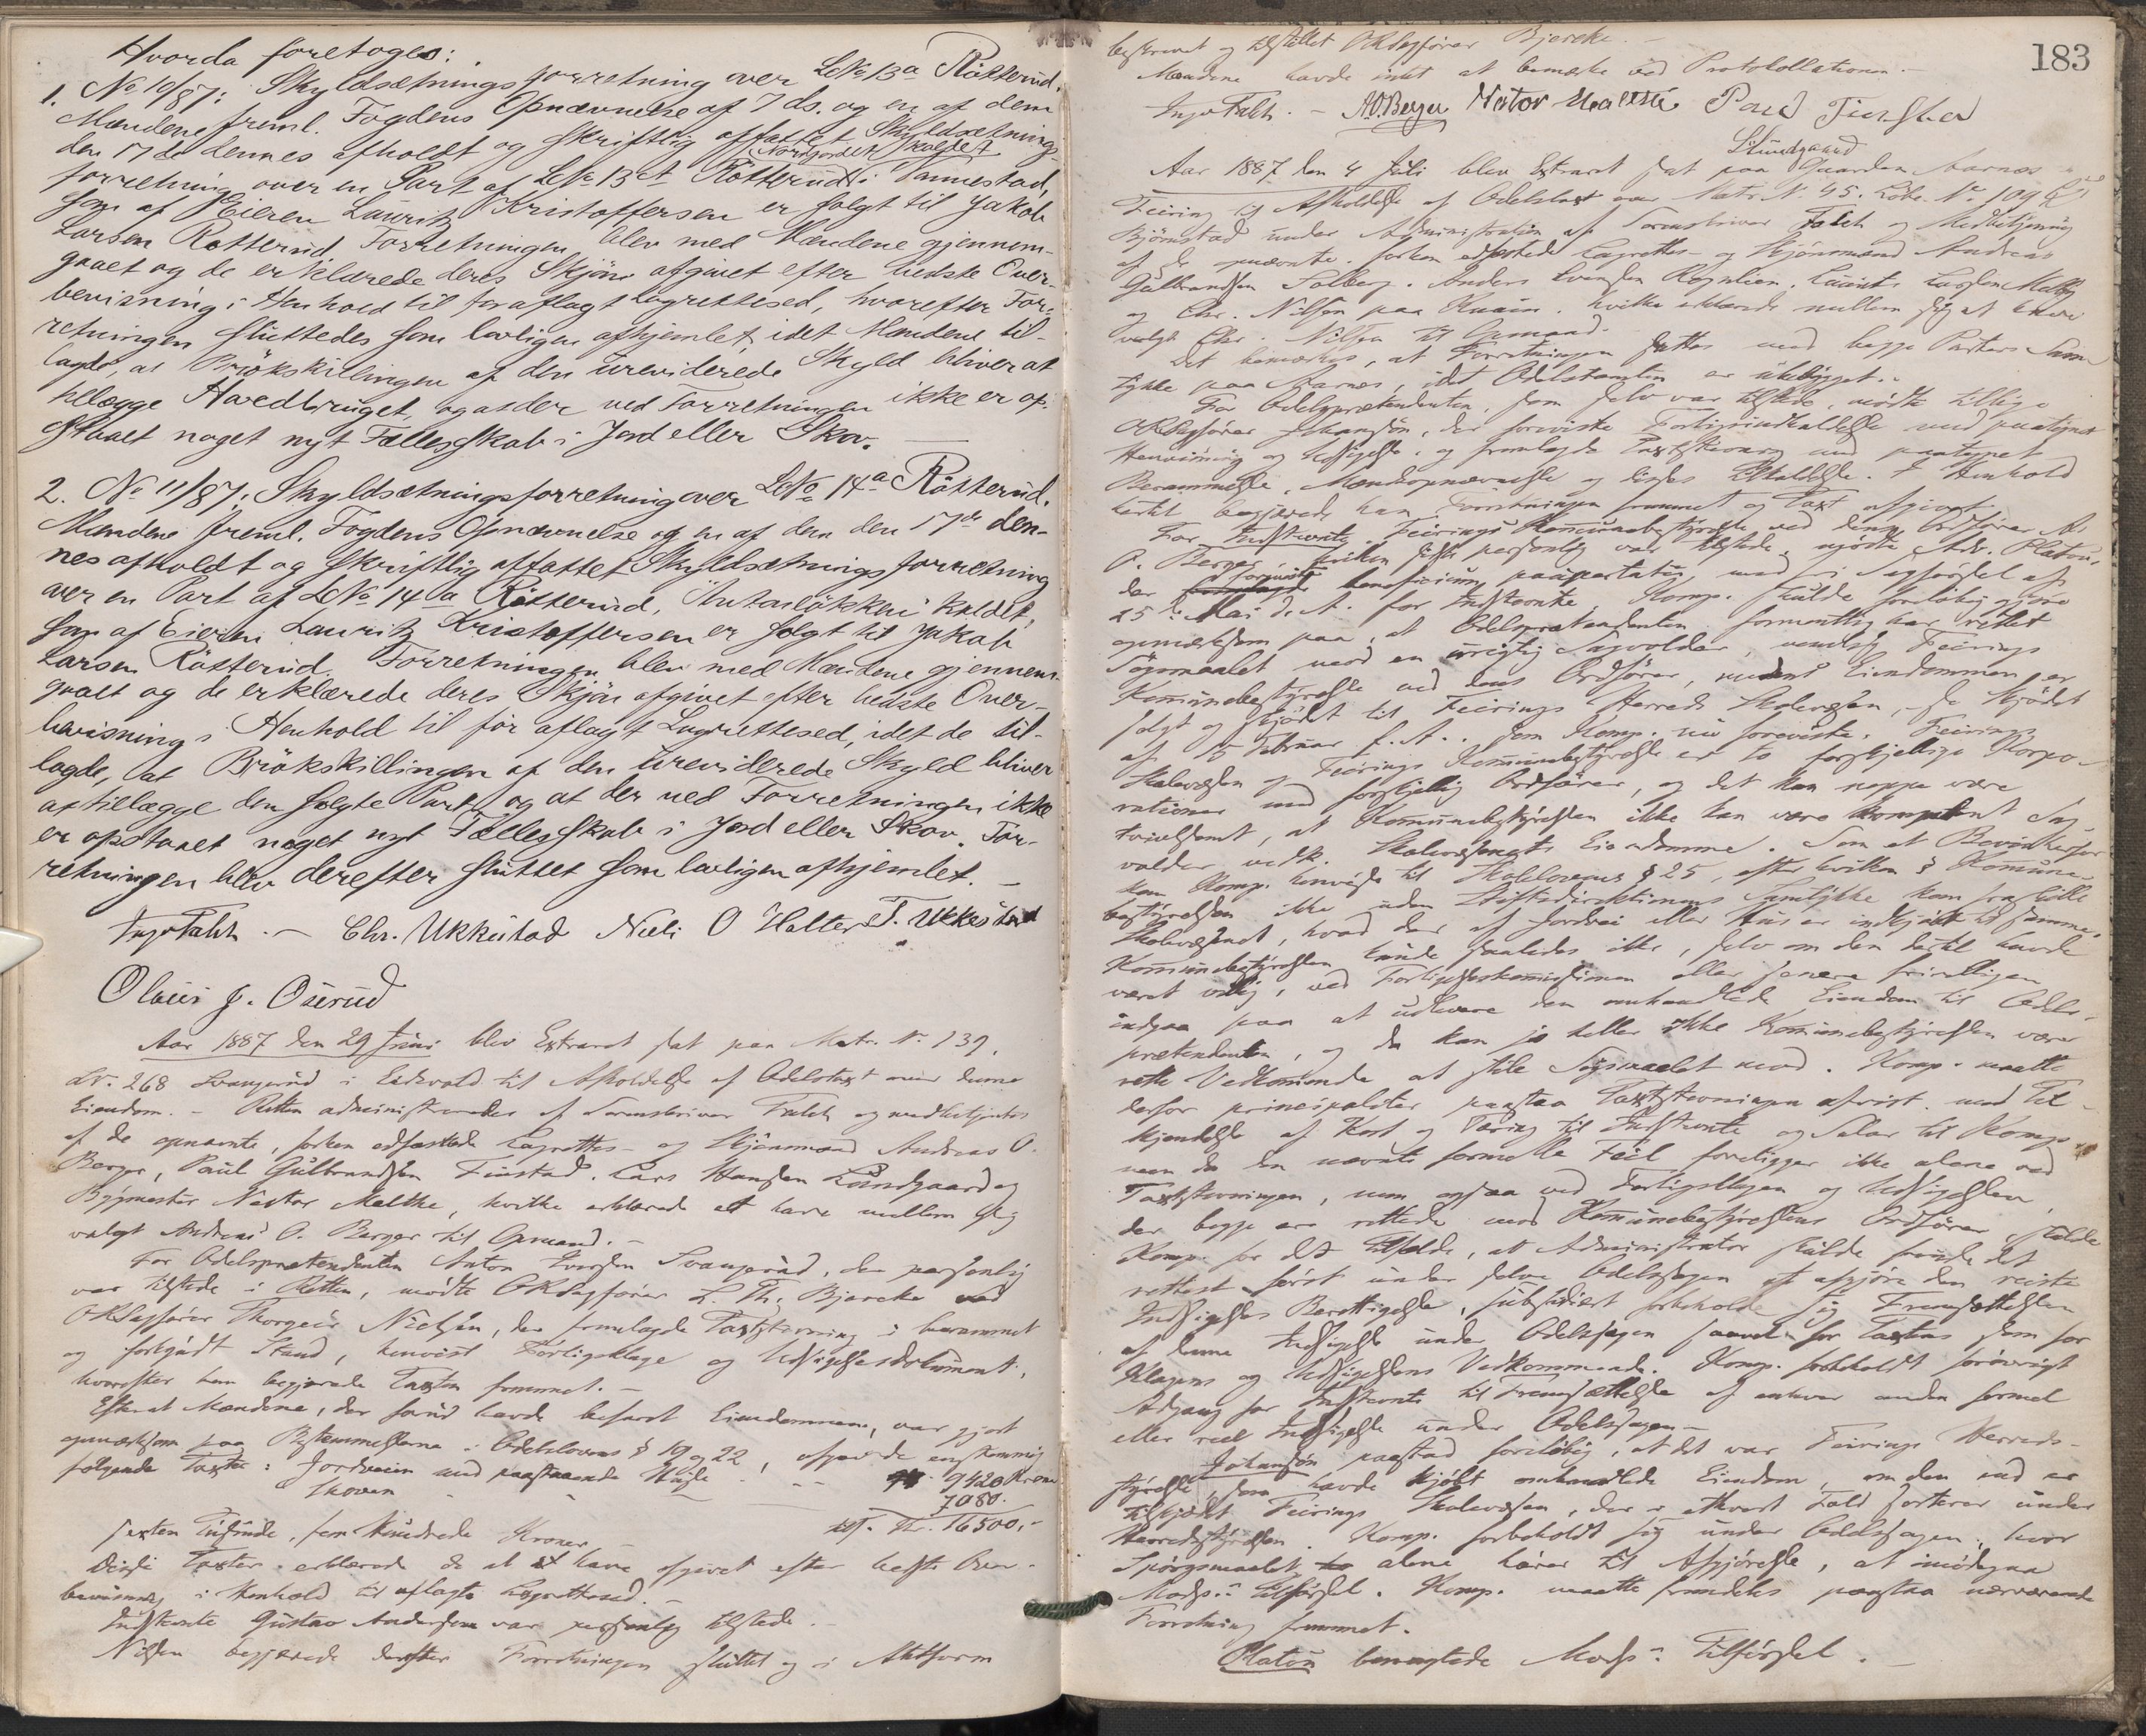 Hvorda foretoges:
1. No 10/87: Skyldsætningsforretning over LNo 13a Rötterud.
Mændene freml. Fogdens Opnævnelse af 7 ds. og en af dem
den 17de dennes afholdt og skriftlig affattet Skyldsætnings-
forretning over en Part af LNo 13a Rötterud i Tannestad,
Nordjordet kaldet
som af Eieren Lauritz Kristoffersen er solgt til Jakob
Larsen Rötterud. Forretningen blev med Mændene gjennem-
gaaet og de erklærede deres Skjön afgivet efter bedste Over-
bevisning i Henhold til før aflagt Lagrettesed, hvorefter For-
retningen sluttedes som lovligen afhjemlet, idet Mændene til-
lagde, at Brökskillingen af den ureviderede Skyld bliver at
tillægge Hovedbruget, og at der ved Forretningen ikke er op-
staaet noget nyt Fællesskab i Jord eller Skov.
2. No 11/87: Skyldsætningsforretning over LNo 14a Rötterud.
Mændene freml. Fogdens Opnævnelse og en af dem den 17de den-
nes afholdt og skriftlig affattet Skyldsætningsforretning
over en Part af LNo 14a Rötterud, kaldet,
som af Eieren Lauritz Kristoffersen er solgt til Jakob
Larsen Rötterud. Forretningen blev med Mændene gjennem-
gaaet og de erklærede deres Skjön afgivet efter bedste Over-
bevisning i Henhold til før aflagt Lagrettesed, idet de til-
lagde, at Brökskillingen af den ureviderede Skyld bliver
at tillægge den solgte Part, og at der ved Forretningen ikke
er opstaaet noget nyt Fællesskab i Jord eller Skov. For-
retningen blev derefter sluttet som lovligen afhjemlet. —
Chr. Ukkestad Nils O Halter T. Ukkestad
Olaus J. Oserud
Aar 1887 den 29 Juni blev Extraret sat paa Matr. No 139,
LN. 268 Svangerud i Eidsvold til Afholdelse af Odelstaxt over denne
Eiendom. — Retten administreredes af Sorenskriver Falch og medbetjentes
af de opnævnte, forhen edfæstede Lagrettes- og Skjönsmænd Andreas O.
Berger, Paul Gulbrandsen Finstad, Lars Hansen Lundgaard og
Bygmester Nestor Malthe, hvilke erklærede at have mellem sig
valgt Andreas O. Berger til Opmand. —
For Odelsprætendenten Anton Iversen Svangerud, der personlig
var tilstede i Retten, mödte ORSagförer L. Th. Bjercke ved
ORSagförer Thorgeir Nielsen, der fremlagde Taxtstevning i berammet
og forkyndt Stand, henvist Forligsklage og Udsigelsesdokument,
hvorefter han begjærede Taxten fremmet. —
Efterat Mændene, der forud havde befaret Eiendommen, var gjort
opmærksom paa Bestemmelserne i Odelslovens § 19 og 22, afgav de enstemmig
følgende Taxter: Jordveien med paastaaende Huse 9420 Kroner
Skoven — 7080.
tils. Kr. 16500,-
sexten Tusinde, fem Hundrede Kroner
Disse Taxter erklærede de at have afgivet efter bedste Over-
bevisning i Henhold til aflagte Lagrettesed. —
Indstevnte Gustav Andersen var personlig tilstede. —
Nielsen begjærede derefter Forretningen sluttet og i Aktform
183
beskrevet og tilstillet ORSagförer Bjercke. —
Mændene havde intet at bemærke ved Protokollationen. —
A.O. Berger Nestor Malthe Paul Finstad
Lundgaard
Aar 1887 den 4 Juli blev Extraret sat paa Gaarden Aarnæs i
Feiring til Afholdelse af Odelstaxt over Matr. N. 45. Löbe-No 109
Björnstad under Administration af Sorenskriver Falch og Medbetjening
af de opnævnte, forhen edfæstede Lagrettes- og Skjönsmænd Andreas
Gulbrandsen Solberg, Anders Evensen Rognlien, Laurits Larsen
og Chr. Nilsen paa hvilke erklærede mellem sig at have
valgt Chr. Nilsen til Opmand. —
Det bemærkes, at Forretningen sættes med begge Parters Sam-
tykke paa Aarnæs, idet Odelstomten er ubebygget. —
For Odelsprætendenten, som selv var tilstede, mødte tillige
ORSagförer Johansön, der foreviste Forligsindkaldelse med paategnet
Henvisning og Udsigelse, og fremlagde Taxtstevning med paategnet
Berammelse, Mændsopnævnelse og disses Tilkaldelse. I Henhold
hertil begjærede han Forretningen fremmet og Taxt afgivet.
For Indstevnte, Feirings Kommunebestyrelse ved dens Ordförer A.
O. Berger, hvilken sidste personlig var tilstede, mödte Adv. Platou,
der foreviste beneficium paupertatis med Sagförsel af
25de Mai d. A. for Indstevnte. Komp. skulde foreløbig gjøre
opmærksom paa, at Odelsprætendenten formentlig har rettet
Søgsmaalet mod en urigtig Sagvolder, nemlig Feirings
Kommunebestyrelse ved dens Ordförer, medens Eiendommen er
solgt og skjödet til Feirings Herreds Skolevæsen, se Skjödet
af 15 Februar f. A., som Komp. nu foreviste. Feirings
Skolevæsen og Feirings Kommunebestyrelse er to forskjellige Korpo-
rationer med forskjellig Ordförer, og det kan neppe være
tvivlsomt, at Kommunebestyrelsen ikke kan være kompetent Sag-
volder vedk. Skolevæsenets Eiendomme. Som et Bevis herfor
kan Komp. henvise til Skolelovens § 25, efter hvilken § Kommune-
bestyrelsen ikke uden Stiftsdirektionens Samtykke kan fraskille
Skolevæsenet, hvad der af Jordvei eller Hus er indkjöbt til samme.
Kommunebestyrelsen kunde saaledes ikke, selv om den dertil havde
været villig, ved Forligelseskommissionen eller senere frivilligen
indgaa paa at udlevere den omhandlede Eiendom til Odels-
prætendenten, og da kan jo heller ikke Kommunebestyrelsen være
rette Vedkommende at stile Søgsmaalet mod. Komp. maatte
derfor principaliter paastaa Taxtstevningen afvist med Til-
kjendelse af Kost og Tæring til Indstevnte og Salær til Komp.
men da den nævnte formelle Feil foreligger ikke alene ved
Taxtstevningen, men ogsaa ved Forligsklagen og Udsigelsen,
der begge ere rettede mod Kommunebestyrelsens Ordförer, skulde
Komp. for det Tilfælde, at Administrator skulde finde det
rettest først under selve Odelssagen at afgjöre den reiste
Indsigelses Berettigelse, subsidiært forbeholde sig Fremsættelsen
af denne Indsigelse under Odelssagen saavel for Taxtens som for
Klagens og Udsigelsens Vedkommende. Komp. forbeholdt forövrigt
Adgang for Indstevnte til Fremsættelse af enhver anden formel
eller reel Indsigelse under Odelssagen. —
Johansön paastod foreløbig, at det var Feirings Herreds-
styrelse, som havde kjöbt omhandlede Eiendom, om den end er
tilskjödet Feirings Skolevæsen, der i ethvert Fald sorterer under
Herredsstyrelsen. Komp. forbeholdt sig under Odelssagen, hvor
Spörgsmaalet alene hörer til Afgjörelse, at imödegaa
Modp.s Tilförsel. Komp. maatte fremdeles paastaa nærværende
Forretning fremmet.
Platou benegtede Modp.s Tilförsel. —